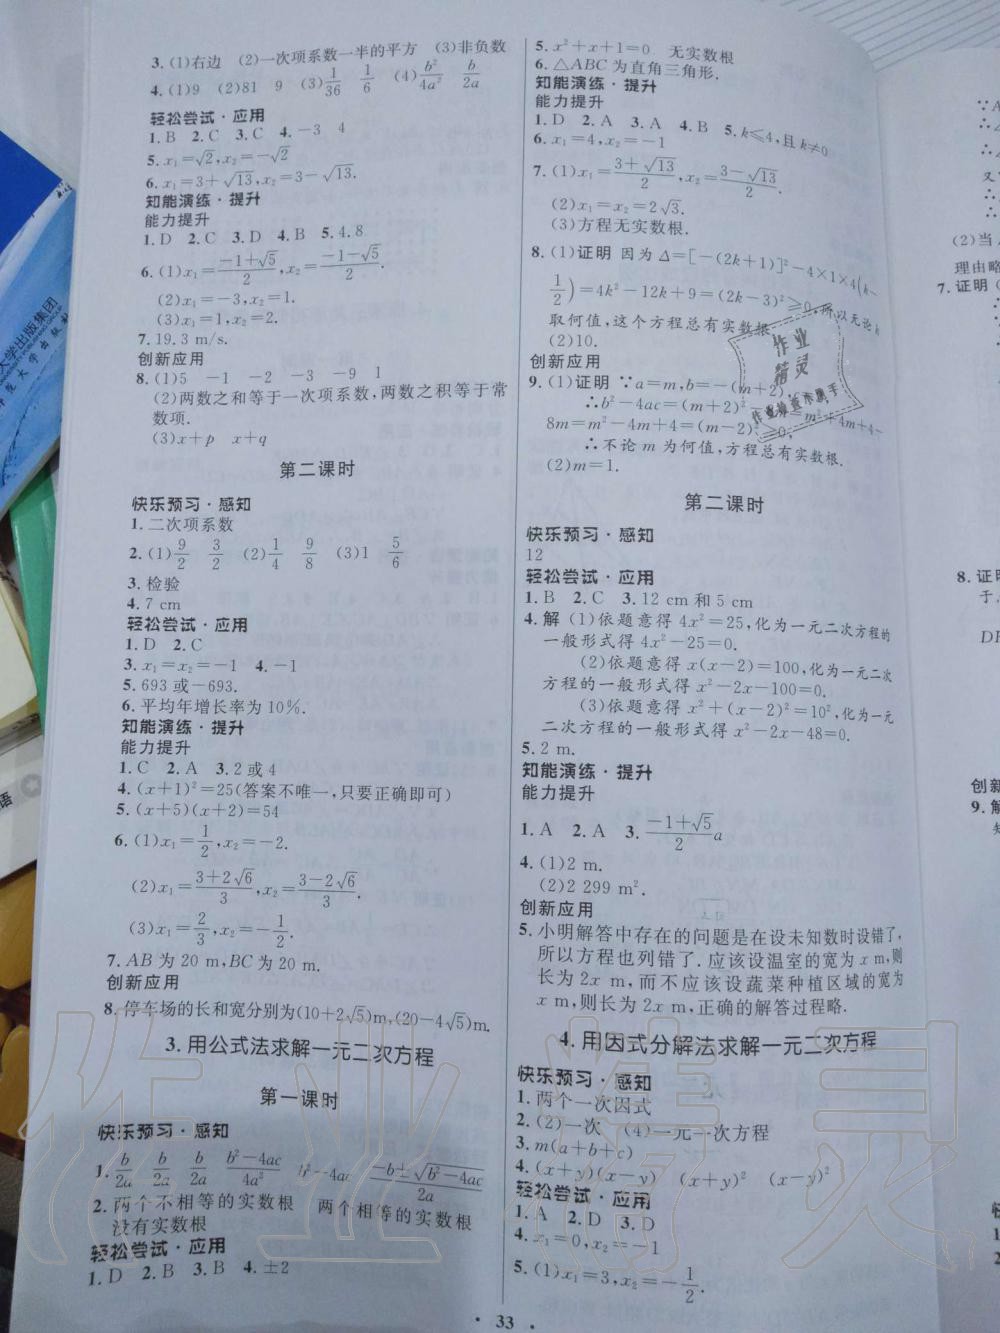 3.(1)右边 (2)一次项系数一半的平方 (3)非负数
4.(1)9 (2)81 9 (3)1/36 1/6 (4)b²/4a² b/2a
轻松尝试·应用
1.B 2.C 3.C 4.-3 4
5.x₁=√2,x₂=-√2
6.x₁=3+√13,x₂=3-√13.
知能演练·提升
能力提升
1.D 2.C 3.D 4.B 5.4.8
6.(1)x₁=(-1+√5)/2,x₂=(-1-√5)/2.
(2)x₁=-3,x₂=1.
(3)x₁=1,x₂=2.
7.19.3 m/s.
创新应用
8.(1)5 -1 -2 -3 -9 1
(2)两数之和等于一次项系数,两数之积等于常
数项.
(3)x+p x+q
第二课时
快乐预习·感知
1.二次项系数
2.(1)9/2 3/2 (2)1/4 9/8 (3)1 5/6
3.检验
4.7 cm
轻松尝试·应用
1.D 2.C
3.x₁=x₂=-1 4.-1
5.693或-693.
6.平均年增长率为10%.
知能演练·提升
能力提升
1.C 2.A 3.2或4
4.(x+1)²=25(答案不唯一,只要正确即可)
5.(x+5)(x+2)=54
6.(1)x₁=1/2,x₂=-2.
(2)x₁=(3+2√6)/3,x₂=(3-2√6)/3.
(3)x₁=2/3,x₂=-1/2.
7.AB为20 m,BC为20 m.
创新应用
8.停车场的长和宽分别为(10+2√5)m,(20-4√5)m.
3.用公式法求解一元二次方程
第一课时
快乐预习·感知
1.b/2a b/2a b/2a (b²-4ac)/4a² b²-4ac (-b±√(b²-4ac))/2a
2.两个不相等的实数根 两个相等的实数根
没有实数根
轻松尝试·应用
1.D 2.B 3.B 4.±2
5.x²+x+1=0 无实数根
6.△ABC为直角三角形.
知能演练·提升
能力提升
1.D 2.A 3.A 4.B 5.k≤4,且k≠0
6.x₁=4,x₂=-1
7.(1)x₁=(3+√13)/2,x₂=(3-√13)/2.
(2)x₁=x₂=2√3.
(3)方程无实数根.
8.(1)证明 因为Δ=[-(2k+1)]²-4×1×4(k-
1/2)=4k²-12k+9=(2k-3)²≥0,所以无论k
取何值,这个方程总有实数根.
(2)10.
创新应用
9.(1)证明 ∵a=m,b=-(m+2),
∴b²-4ac=(m+2)²-=m²+4m+4-
8m=m²-4m+4=(m-2)²≥0,
∴不论m为何值,方程总有实数根.
(2)m=1.
第二课时
快乐预习·感知
12
轻松尝试·应用
1.B 2.C 3.12 cm和5 cm
4.解 (1)依题意得4x²=25,化为一元二次方程的
一般形式得4x²-25=0.
(2)依题意得x(x-2)=100,化为一元二次
方程的一般形式得x²-2x-100=0.
(3)依题意得x²+(x-2)²=10²,化为一元
二次方程的一般形式得x²-2x-48=0.
5.2 m.
知能演练·提升
能力提升
1.A 2.A 3.(-1+√5)/2 a
4.(1)2 m.
(2)2 299 m².
创新应用
5.小明解答中存在的问题是在设未知数时设错了,
所以方程也列错了.应该设温室的宽为x m,则
长为2x m,而不应该设蔬菜种植区域的宽为
x m,则长为2x m,正确的解答过程略.
4.用因式分解法求解一元二次方程
快乐预习·感知
1.两个一次因式
2.(2)一次 (4)一元一次方程
3.m(a+b+c)
4.(x+y)(x-y) (x+y)² (x-y)²
轻松尝试·应用
1.A 2.D 3.D
4.x₁=0,x₂=-1
5.(1)x₁=3,x₂=-1/2.
·33·
作业精灵
作业检查小助手
大学出版集团
语
(2)当
理由略
7.证明
8.证明
9.解